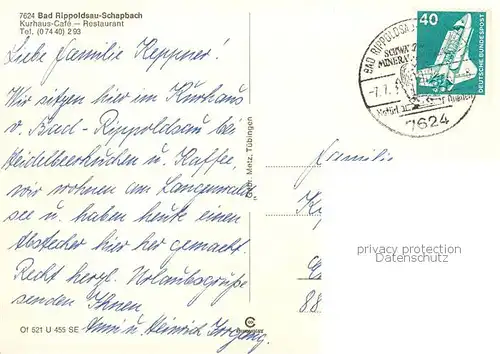 7624 Bad Rippoldsau-Schapbach
Kurhaus-Café – Restaurant
Tel. (0 74 40) 2 93
Liebe Familie Keppner!
Wir sitzen hier im Kurhaus
v. Bad-Rippoldsau bei
Heidelbeerkuchen u. Kaffee,
wir wohnen am Langenwald
see u. haben heute einen
Abstecher hier her gemacht.
Recht herzl. Urlaubsgrüße
senden Ihnen
Anni u. Heinrich
Of 521 U 455 SE
Gebr. Metz, Tübingen
BAD RIPPOLDSAU
MINERAL
-7.7.
7624
40
DEUTSCHE BUNDESPOST
Familie
privacy protection
88